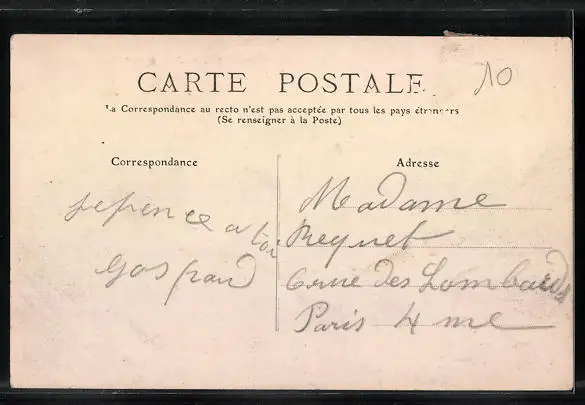 10
CARTE POSTALE
La Correspondance au recto n'est pas acceptée par tous les pays étrangers
(Se renseigner à la Poste)
Correspondance
Adresse
je pence a toi
Gaspard
Madame
Requet
6 rue des Lombards
Paris 4 me